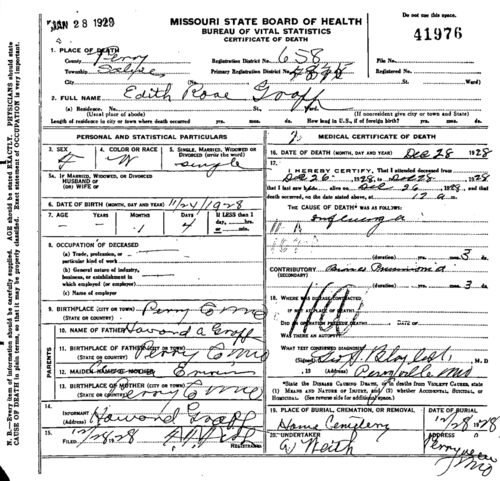 JAN 28 1929
MISSOURI STATE BOARD OF HEALTH
BUREAU OF VITAL STATISTICS
CERTIFICATE OF DEATH
Do not use this space.
41976
1. PLACE OF DEATH
County Perry
Registration District No. 658
File No.
Township
Primary Registration District No.
Registered No.
City
(No.
St.
Ward)
2. FULL NAME Edith Rose Groff
(a) Residence. No.
St.
Ward.
(Usual place of abode)
(If nonresident give city or town and State)
Length of residence in city or town where death occurred yrs. mos. ds. How long in U.S., if of foreign birth? yrs. mos. ds.
PERSONAL AND STATISTICAL PARTICULARS
3. SEX
F
4. COLOR OR RACE
W
5. SINGLE, MARRIED, WIDOWED OR
DIVORCED (write the word)
single
5A. IF MARRIED, WIDOWED, OR DIVORCED
HUSBAND OF
(OR) WIFE OF
6. DATE OF BIRTH (MONTH, DAY AND YEAR) 11/24/1928
7. AGE YEARS MONTHS DAYS If LESS than 1
day, hrs.
or min.
- 1 4
8. OCCUPATION OF DECEASED
(a) Trade, profession, or
particular kind of work
(b) General nature of industry,
business, or establishment in
which employed (or employer)
(c) Name of employer
9. BIRTHPLACE (CITY OR TOWN) Perry Co Mo
(STATE OR COUNTRY)
PARENTS
10. NAME OF FATHER Howard A Groff
11. BIRTHPLACE OF FATHER (CITY OR TOWN)
(STATE OR COUNTRY) Perry Co Mo
12. MAIDEN NAME OF MOTHER
13. BIRTHPLACE OF MOTHER (CITY OR TOWN)
(STATE OR COUNTRY) Perry Co Mo
14.
INFORMANT Howard Groff
(Address)
15.
FILED 12/28 1928
REGISTRAR
MEDICAL CERTIFICATE OF DEATH
16. DATE OF DEATH (MONTH, DAY AND YEAR) Dec 28 1928
17.
I HEREBY CERTIFY, That I attended deceased from
Dec 26 1928, to Dec 28 1928
that I last saw h alive on Dec 26 1928, and that
death occurred, on the date stated above, at 12 a m.
THE CAUSE OF DEATH* WAS AS FOLLOWS:
Influenza
11 A
(duration) yrs. mos. 3 ds.
CONTRIBUTORY Bronco Pneumonia
(SECONDARY)
(duration) yrs. mos. 3 ds.
18. WHERE WAS DISEASE CONTRACTED
IF NOT AT PLACE OF DEATH?
DID AN OPERATION PRECEDE DEATH? DATE OF
WAS THERE AN AUTOPSY?
WHAT TEST CONFIRMED DIAGNOSIS?
(Signed) , M. D.
, 19 (Address) Perryville Mo
*State the DISEASE CAUSING DEATH, or in deaths from VIOLENT CAUSES, state
(1) MEANS AND NATURE OF INJURY, and (2) whether ACCIDENTAL, SUICIDAL, or
HOMICIDAL. (See reverse side for additional space.)
19. PLACE OF BURIAL, CREMATION, OR REMOVAL
DATE OF BURIAL
Home Cemetery
12/28 1928
20. UNDERTAKER
ADDRESS
Perryville
Mo
N. B.—Every item of information should be carefully supplied. AGE should be stated EXACTLY. PHYSICIANS should state
CAUSE OF DEATH in plain terms, so that it may be properly classified. Exact statement of OCCUPATION is very important.